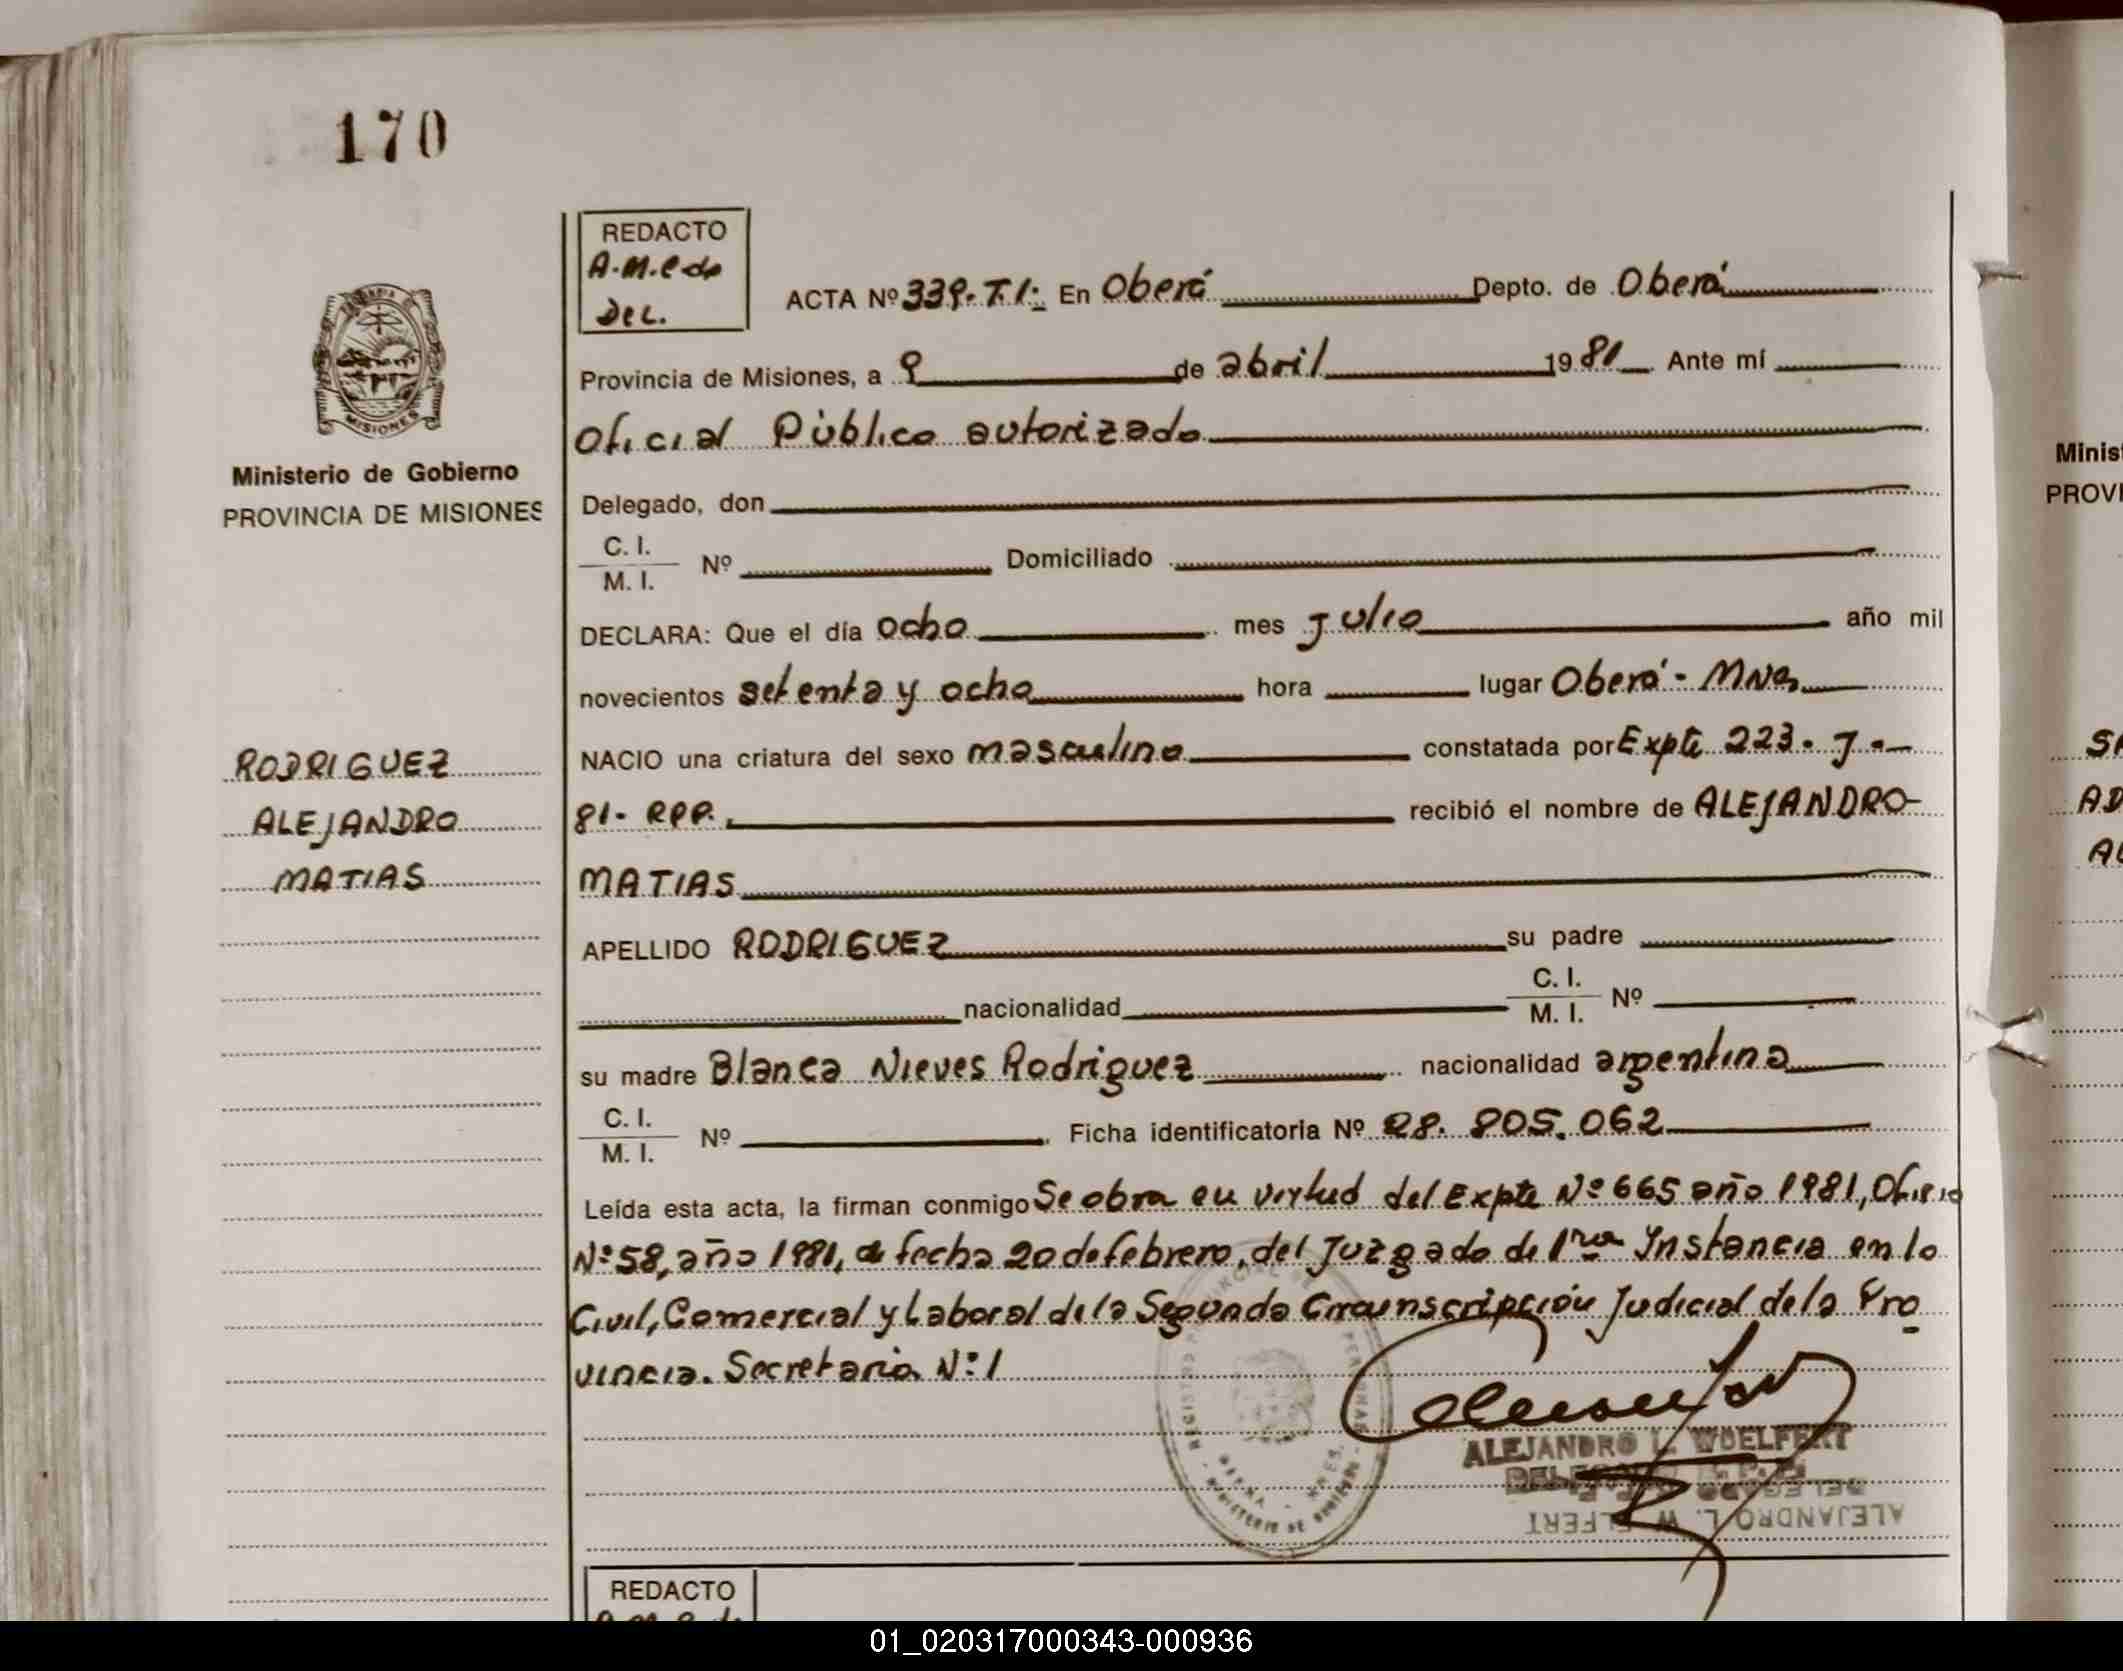 170
REDACTO
A.M.C de
Dec.
ACTA Nº 339. T. I: En Oberá Depto. de Oberá
Provincia de Misiones, a 9 de abril 1981 Ante mí
Oficial Público autorizado
Delegado, don
C. I.
M. I. Nº Domiciliado
DECLARA: Que el día ocho mes julio año mil
novecientos setenta y ocho hora lugar Oberá - Mnes
NACIO una criatura del sexo masculino constatada por Expte 223. J.
81. RPP. recibió el nombre de ALEJANDRO
MATIAS
APELLIDO RODRIGUEZ su padre
nacionalidad C. I.
M. I. Nº
su madre Blanca Nieves Rodriguez nacionalidad argentina
C. I.
M. I. Nº Ficha identificatoria Nº 28. 805. 062
Leída esta acta, la firman conmigo Se obra en virtud del Expte Nº 665 año 1981, Oficio
Nº 58, año 1981, de fecha 20 de febrero, del Juzgado de 1ra Instancia en lo
Civil, Comercial y Laboral de la Segunda Circunscripción Judicial de la Pro
vincia. Secretaria Nº 1
ALEJANDRO L. WOELFERT
DELEGADO
Ministerio de Gobierno
PROVINCIA DE MISIONES
MISIONES
RODRIGUEZ
ALEJANDRO
MATIAS
REDACTO
Minis
PROVI
01_020317000343-000936